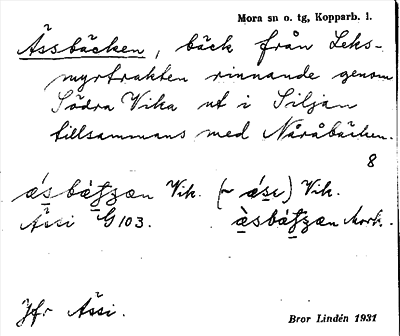 Mora sn o. tg, Kopparb. l.
Ässbäcken, bäck från Leks-
myrtrakten rinnande genom
Södra Vika ut i Siljan
tillsammans med Nåråbäcken.
8
Vik. (~ ǽsı) Vik.
Ässi G 103. Mork.
Jfr Ässi.
Bror Lindén 1931